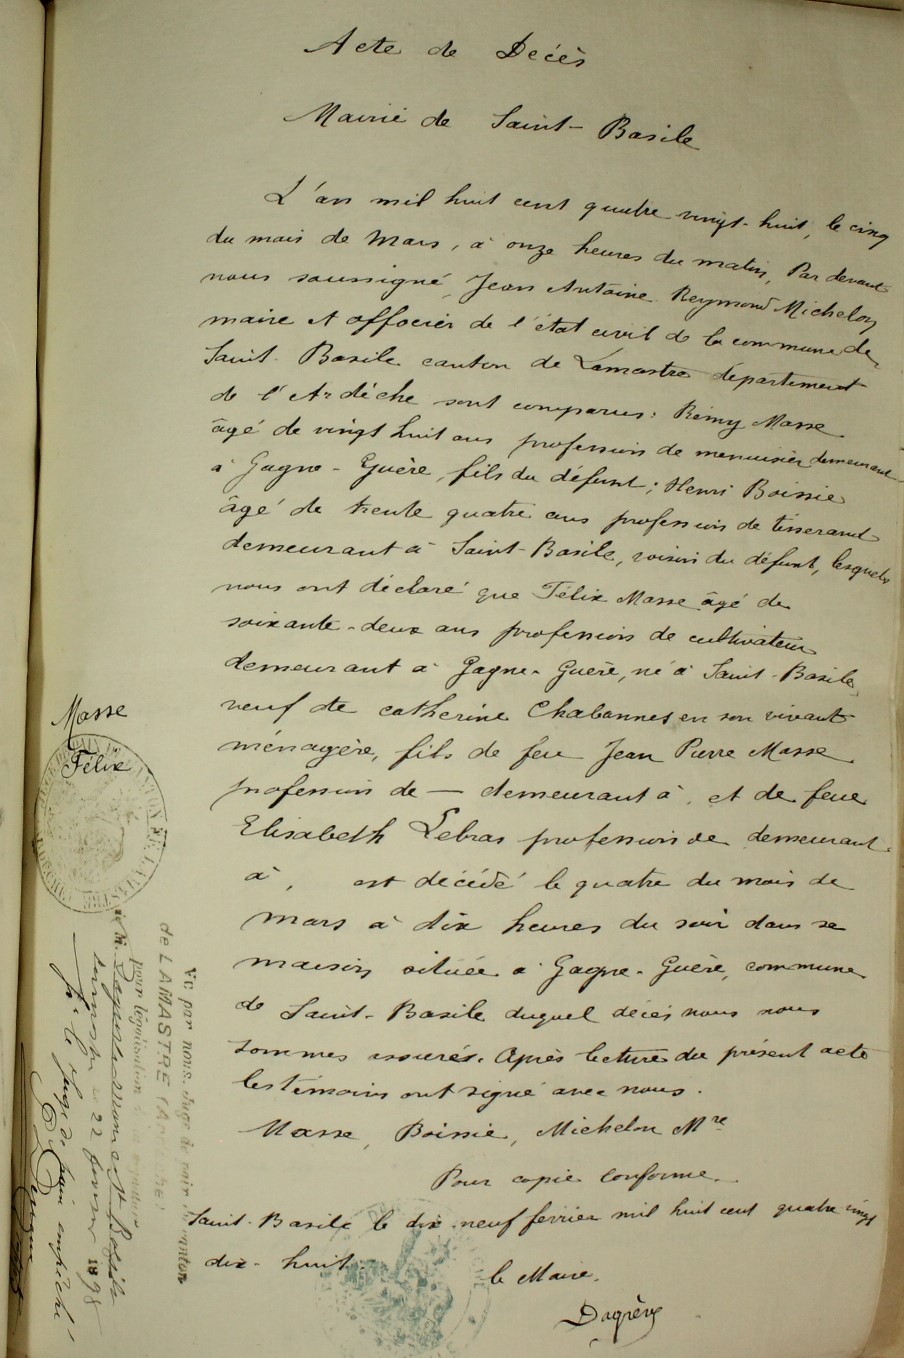 Acte de Décès
Mairie de Saint-Basile
L'an mil huit cent quatre vingt-huit, le cinq
du mois de Mars, à onze heures du matin, Par devant
nous soussigné, Jean Antoine Reymond Michelon
maire et officier de l'état civil de la commune de
Saint-Basile canton de Lamastre département
de l'Ardèche sont comparus: Rémy Masse
âgé de vingt huit ans profession de menuisier demeurant
à Gagne-Guère, fils du défunt; Henri Boissie
âgé de trente quatre ans profession de tisserand
demeurant à Saint-Basile, voisin du défunt, lesquels
nous ont déclaré que Félix Masse âgé de
soixante-deux ans profession de cultivateur
demeurant à Gagne-Guère, né à Saint-Basile,
veuf de catherine Chabannes en son vivant
ménagère, fils de feu Jean Pierre Masse
profession de — demeurant à, et de feue
Elisabeth Lebras profession de demeurant
à, est décédé le quatre du mois de
mars à dix heures du soir dans sa
maison située à Gagne-Guère, commune
de Saint-Basile duquel décès nous nous
sommes assurés. Après lecture du présent acte
les témoins ont signé avec nous.
Masse, Boissie, Michelon Mre
Pour copie conforme.
Saint-Basile le dix-neuf février mil huit cent quatre vingt
dix-huit.
le Maire,
Dagrève
Masse
Félix
Vu par nous, Juge de paix du canton
de LAMASTRE (Ardèche)
pour légalisation de la signature
de M.
Lamastre le 22 février 1898
Le Juge de paix empêché